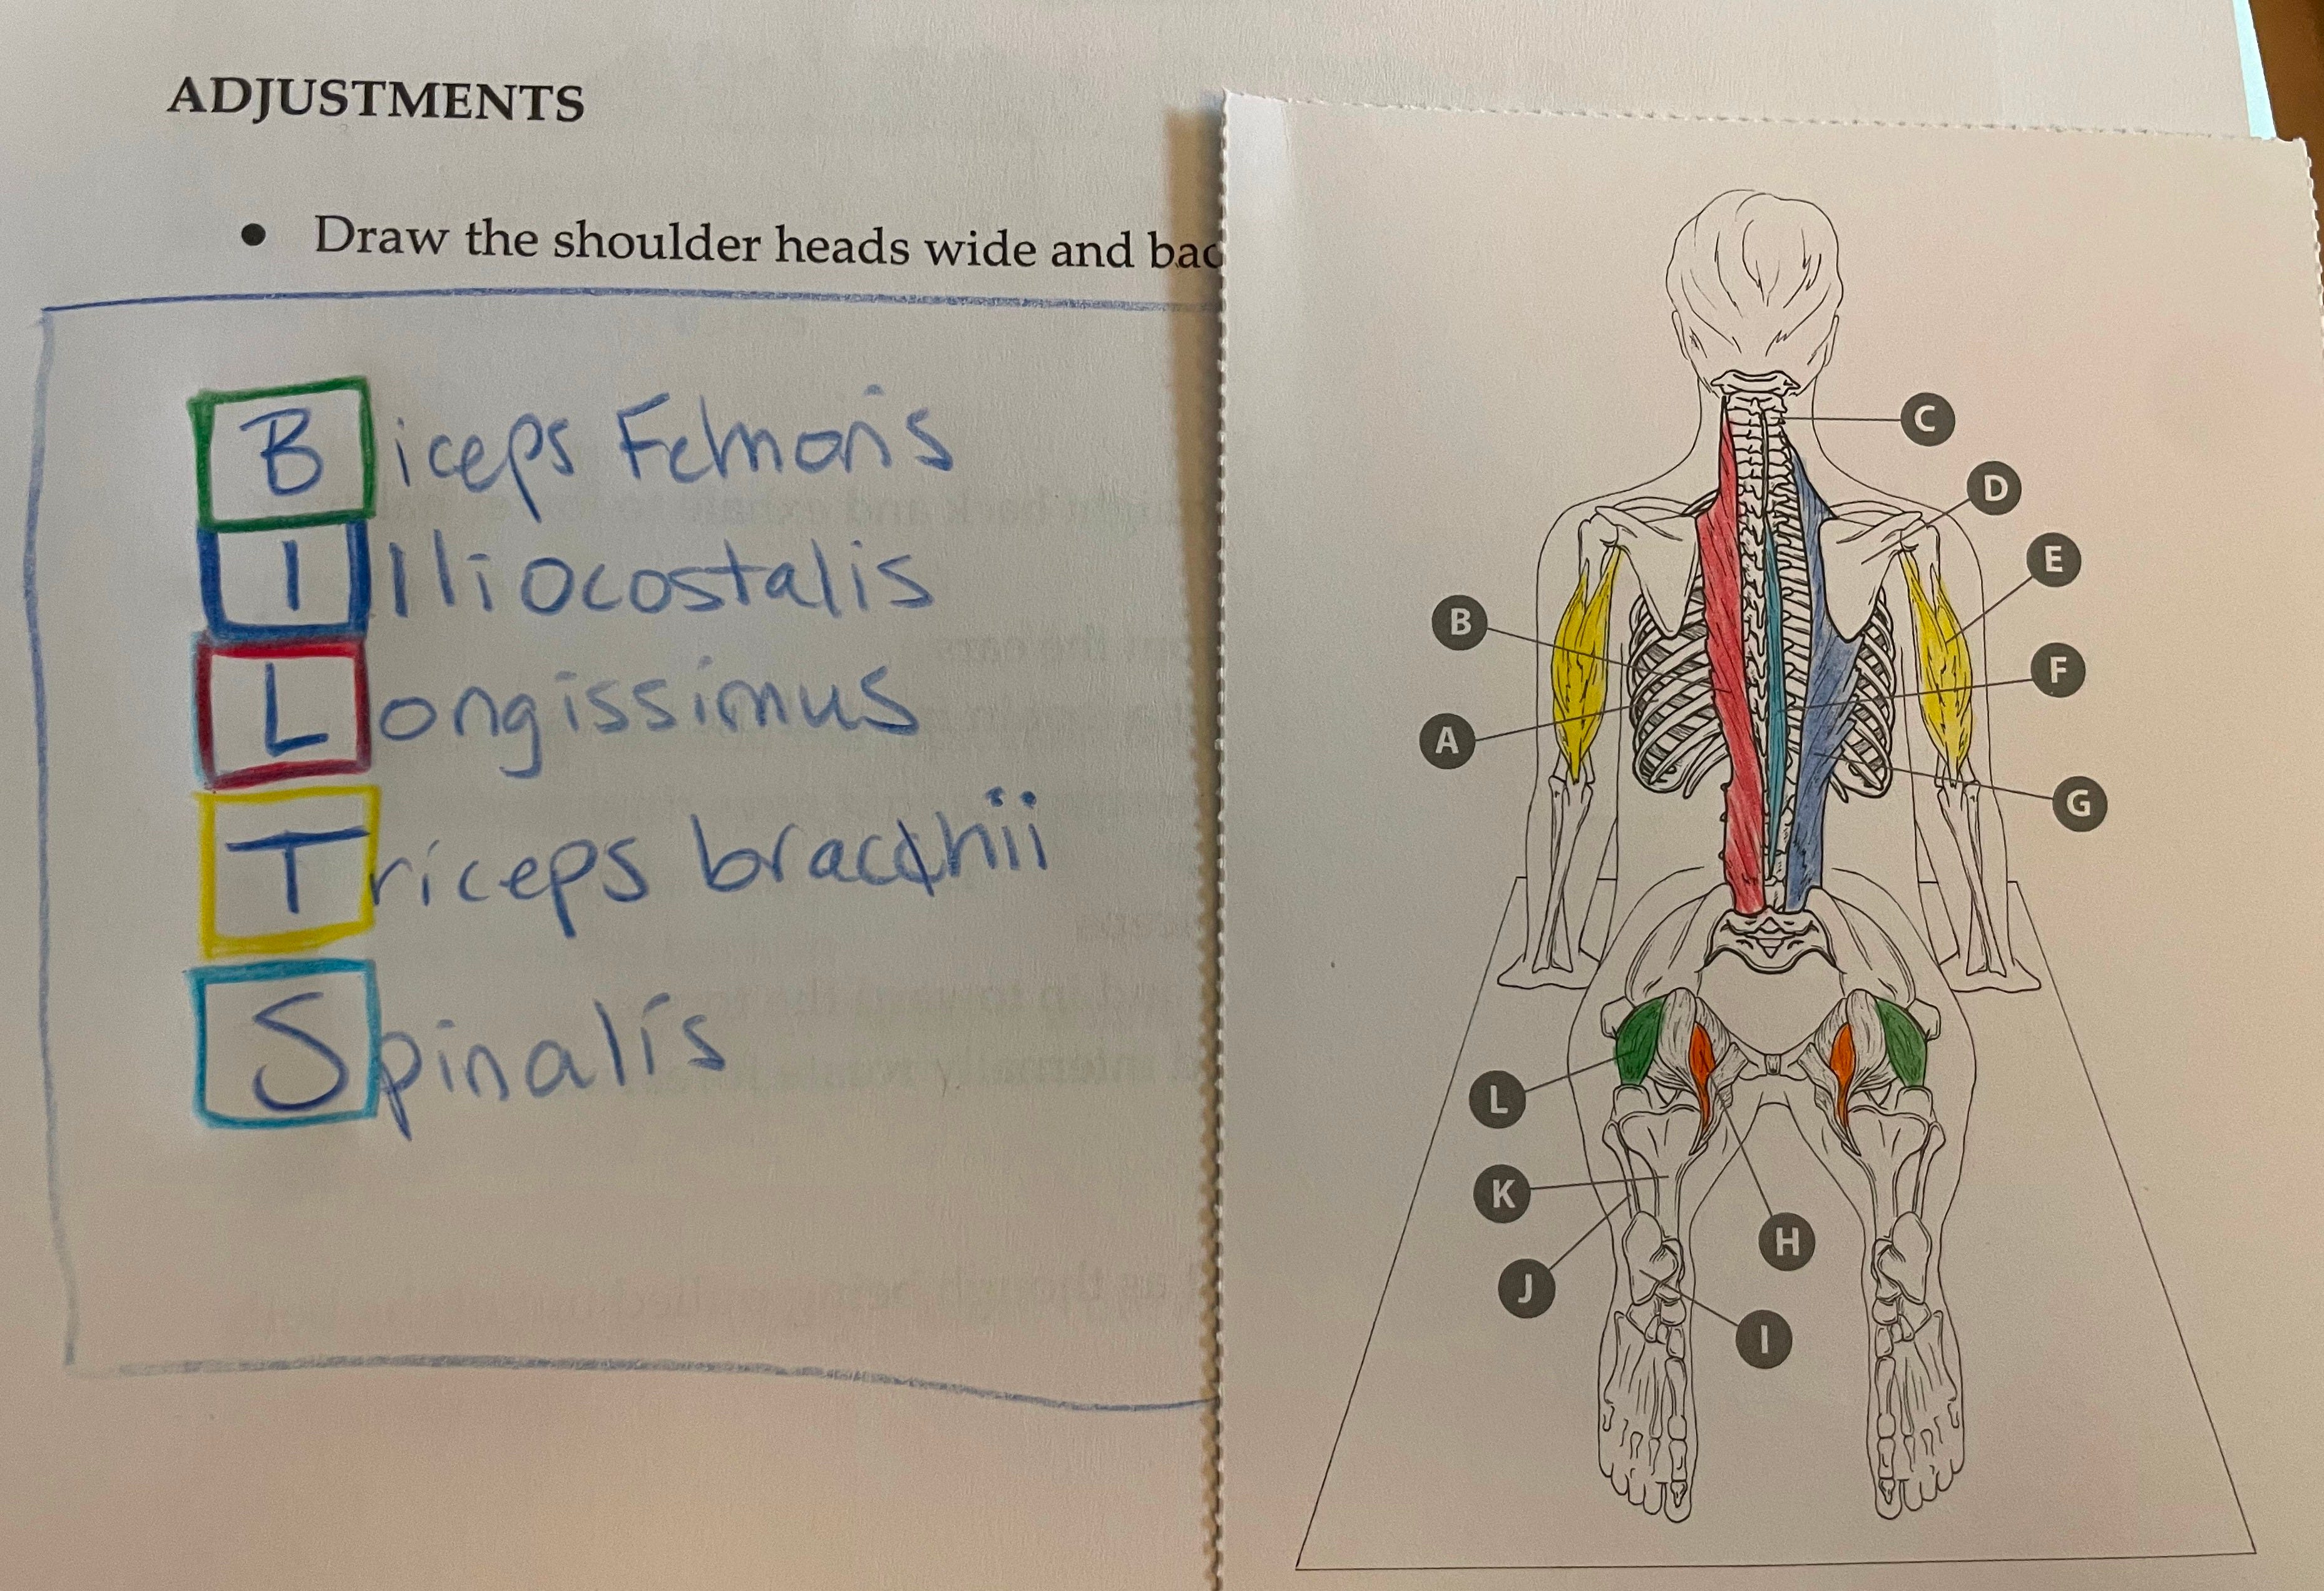 ADJUSTMENTS
• Draw the shoulder heads wide and bac
Biceps Femoris
Illiocostalis
Longissimus
Triceps bracchii
Spinalis
C
D
E
B
F
A
G
L
K
H
J
I